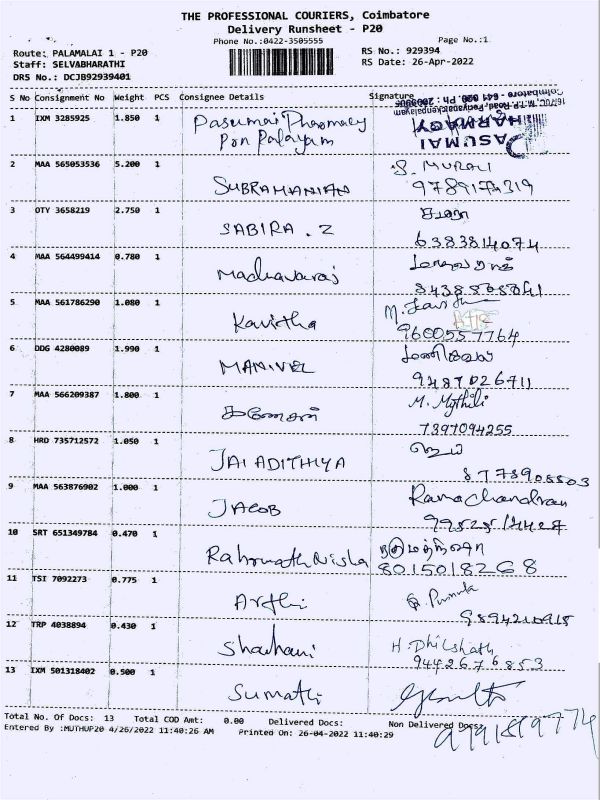 THE PROFESSIONAL COURIERS, Coimbatore
Delivery Runsheet - P20
Phone No.:0422-3505555 Page No.:1
Route: PALAMALAI 1 - P20 RS No.: 929394
Staff: SELVABHARATHI RS Date: 26-Apr-2022
DRS No.: DCJB92939401
S No Consignment No Weight PCS Consignee Details Signature
1 IXM 3285925 1.850 1 Pasumai Pharmacy
Pon Palayam
PASUMAI
PHARMACY
2 MAA 565053536 5.200 1 SUBRAMANIAN S. MURALI
3 OTY 3658219 2.750 1 SABIRA . Z
6383814074
4 MAA 564499414 0.780 1 Madhavaraj
5 MAA 561786290 1.080 1 Kavitha
9600557764
6 DDG 4280089 1.990 1 MANIVEL
9487026711
7 MAA 566209387 1.800 1 கணேசன் M. Mythili
7397094255
8 HRD 735712572 1.050 1 JAI ADITHIYA ஜெய்
8778908803
9 MAA 563876902 1.000 1 JACOB Ramachandran
10 SRT 651349784 0.470 1 Rahmath Nisha
8015018268
11 TSI 7092273 0.775 1 Arthi
12 TRP 4038894 0.430 1 Shavhani H. Dhilshath
9442676853
13 IXM 501318402 0.500 1 Sumathi
Total No. Of Docs: 13 Total COD Amt: 0.00 Delivered Docs: Non Delivered Docs:
Entered By :MUTHUP20 4/26/2022 11:40:26 AM Printed On: 26-04-2022 11:40:29